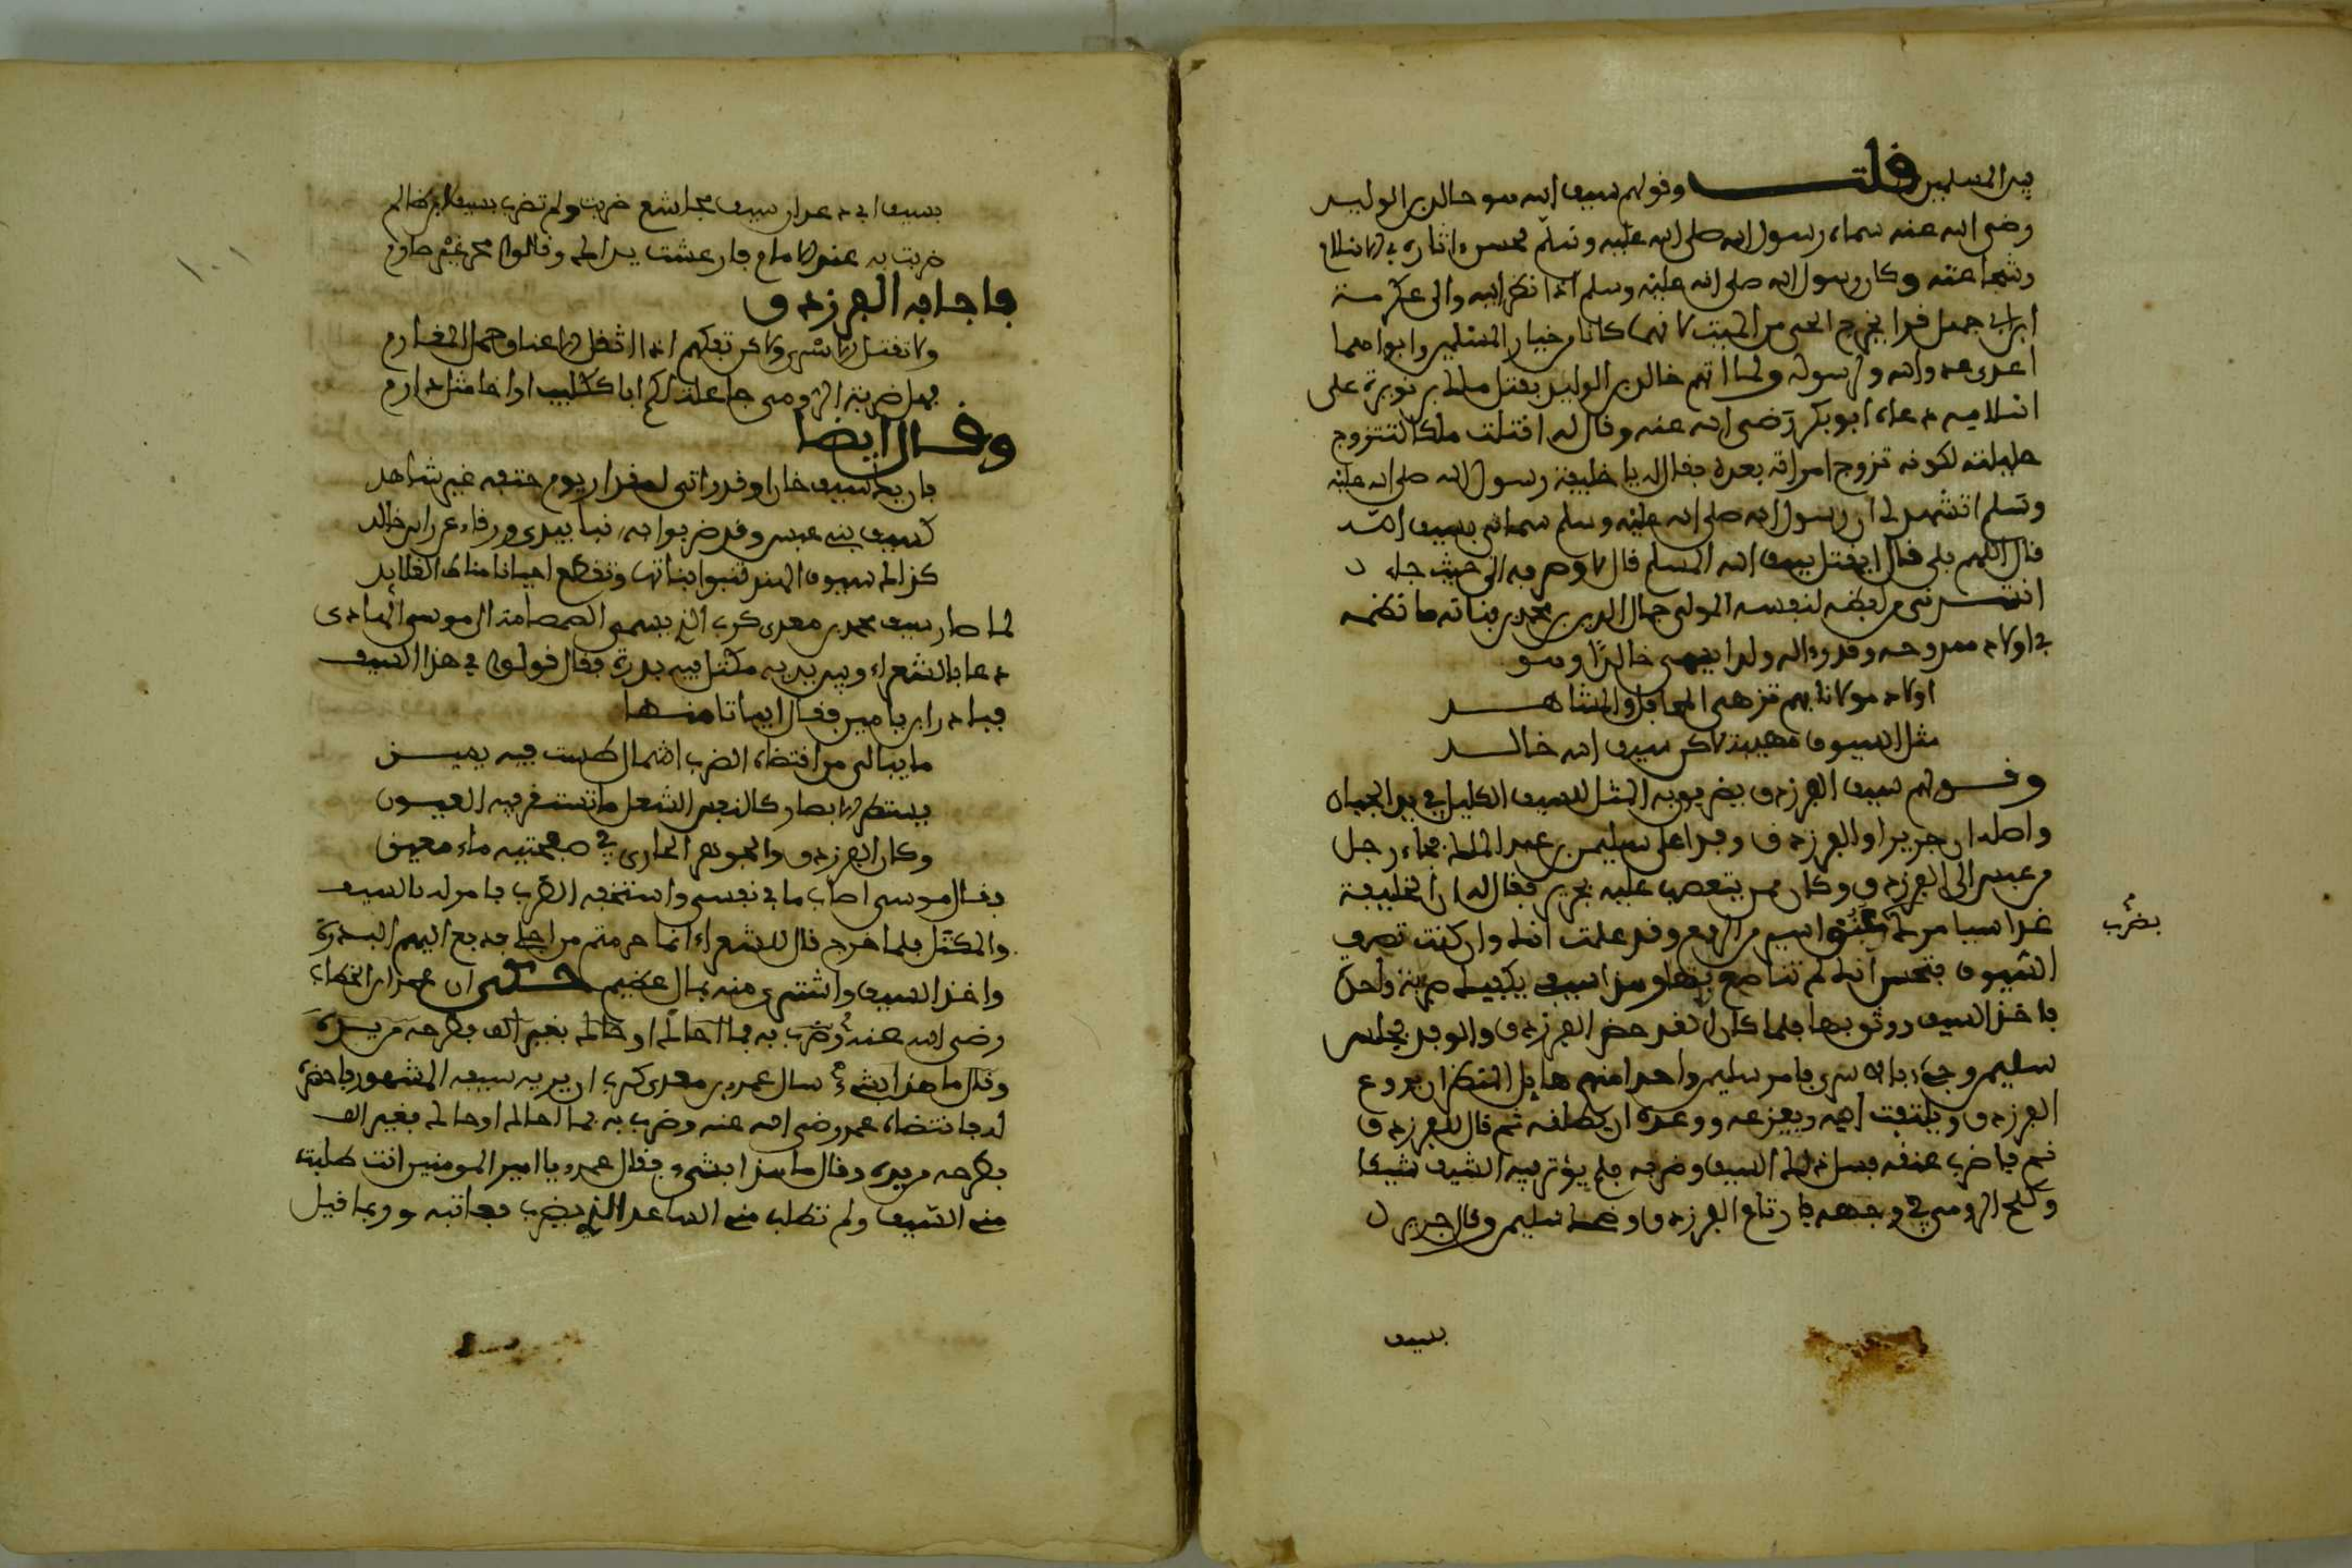 يد المسلمين قلت وقولهم سيف الله هو خالد بن الوليد
رضي الله عنه سماه رسول الله صلى الله عليه وسلم لحسن اثاره في الاسلام
وشجاعته وكان رسول الله صلى الله عليه وسلم اذا نظر اليه والى عكرمة
ابن ابي جهل قرا يخرج الحي من الميت لانهما كانا من خيار المسلمين وابواهما
اعدى عدو لله ولرسوله ولما اتهم خالد بن الوليد بقتل ملك بن نويرة على
اسلاميه دعاه ابو بكر رضي الله عنه وقال له اقتلت ملكا لتتزوج
حليلته لكونه تزوج امراته بعده فقال له يا خليفة رسول الله صلى الله عليه
وسلم اتشهد لي ان رسول الله صلى الله عليه وسلم سماني بسيف الله
قال اللهم بلى قال ايقتل سيف الله المسلم قال لا وصرفه الى حيث جاء
انشدني من لفظه لنفسه المولى جمال الدين بن محمد بن نباته ما نظمه
في اولاد ممدوحه وقد ولد له ولدا يسمى خالدا وهو
اولاد مولانا بهم تزهى المحافل والمشاهد
مثل السيوف مهيبة لاكن سيف الله خالد
وقولهم سيف الفرزدق يضرب به المثل للسيف الكليل في يد الجبان
واصله ان جريرا والفرزدق وفدا على سليمن بن عبد الملك فجاء رجل
من عبس الى الفرزدق وكان ممن يتعصب عليه بجرير فقال له ان الخليفة
غدا سيامرك عنق اسير من الروم وقد علمت انك وان كنت تصف
بضرب
السيوف فتحسن انك لم تناصع بها وهذا سيف يكفيك ضربة واحدة
فاخذ السيف ووثق بها فلما كان الغد حضر الفرزدق والوفد مجلس
سليمن وجيء بالاسرى فامر سليمن واحدا منهم هايل المنظر ان يروع
الفرزدق ويلتفت اليه ويفزعه ووعده ان يطلقه ثم قال للفرزدق
قم فاضرب عنقه فسل ذلك السيف وضربه فلم يؤثر فيه السيف شيئا
وكلح الرومي في وجهه فارتاع الفرزدق وضحك سليمن وقال جرير
بسيف
بسيف ابي رغوان سيف مجاشع ضربت ولم تضرب بسيف ابن ظالم
ضربت به عند الامام فارعشت يداك وقالوا محدث غير صارم
فاجابه الفرزدق
ولا نقتل الاسرى ولاكن نفكهم اذا اثقل الاعناق حمل المغارم
فهل ضربة الرومي جاعلة لكم ابا كليب او اخا مثل دارم
وقال ايضا
فان يك سيف خان او قدر اتى لمقدار يوم حتفه غير شاهد
كسيف بني عبس وقد ضربوا به نبا بيدي ورقاء عن راس خالد
كذاك سيوف الهند تنبوا ظباتها وتقطع احيانا مناط القلايد
لما صار سيف عمرو بن معدي كرب الذي يسمى الصمصامة الى موسى الهادي
دعا بالشعراء وبين يديه مكتل فيه بدرة فقال قولوا في هذا السيف
فبادر ابن يامين فقال ابياتا منها
ما يبالي من انتضاه الضرب اشمال سطت فيه يمين
يستطير الابصار كالقبس الشعل ما تستقر فيه العيون
وكان الفرند والجوهر الجاري في صفحتيه ماء معين
فقال موسى اصاب ما في نفسي واستخفه الطرب فامر له بالسيف
والمكتل فلما خرج قال للشعراء انما حرمتم من اجلي فدفع اليهم البدرة
واخذ السيف واشترى منه بمال عظيم حكي ان عمر بن الخطاب
رضي الله عنه سال عمرو بن معدي كرب ان يريه سيفه المشهور فاحضره
له فانتضاه عمر رضي الله عنه وضرب به فما احاك
فطرحه من يده وقال ما هذا بشيء فقال عمرو يا امير المومنين انت طلبت
مني السيف ولم تطلب مني الساعد الذي يضرب فعاتبه وربما قيل
١٠١